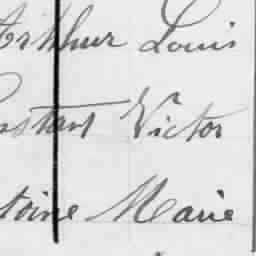 Arthur Louis
nstant Victor
toine Marie